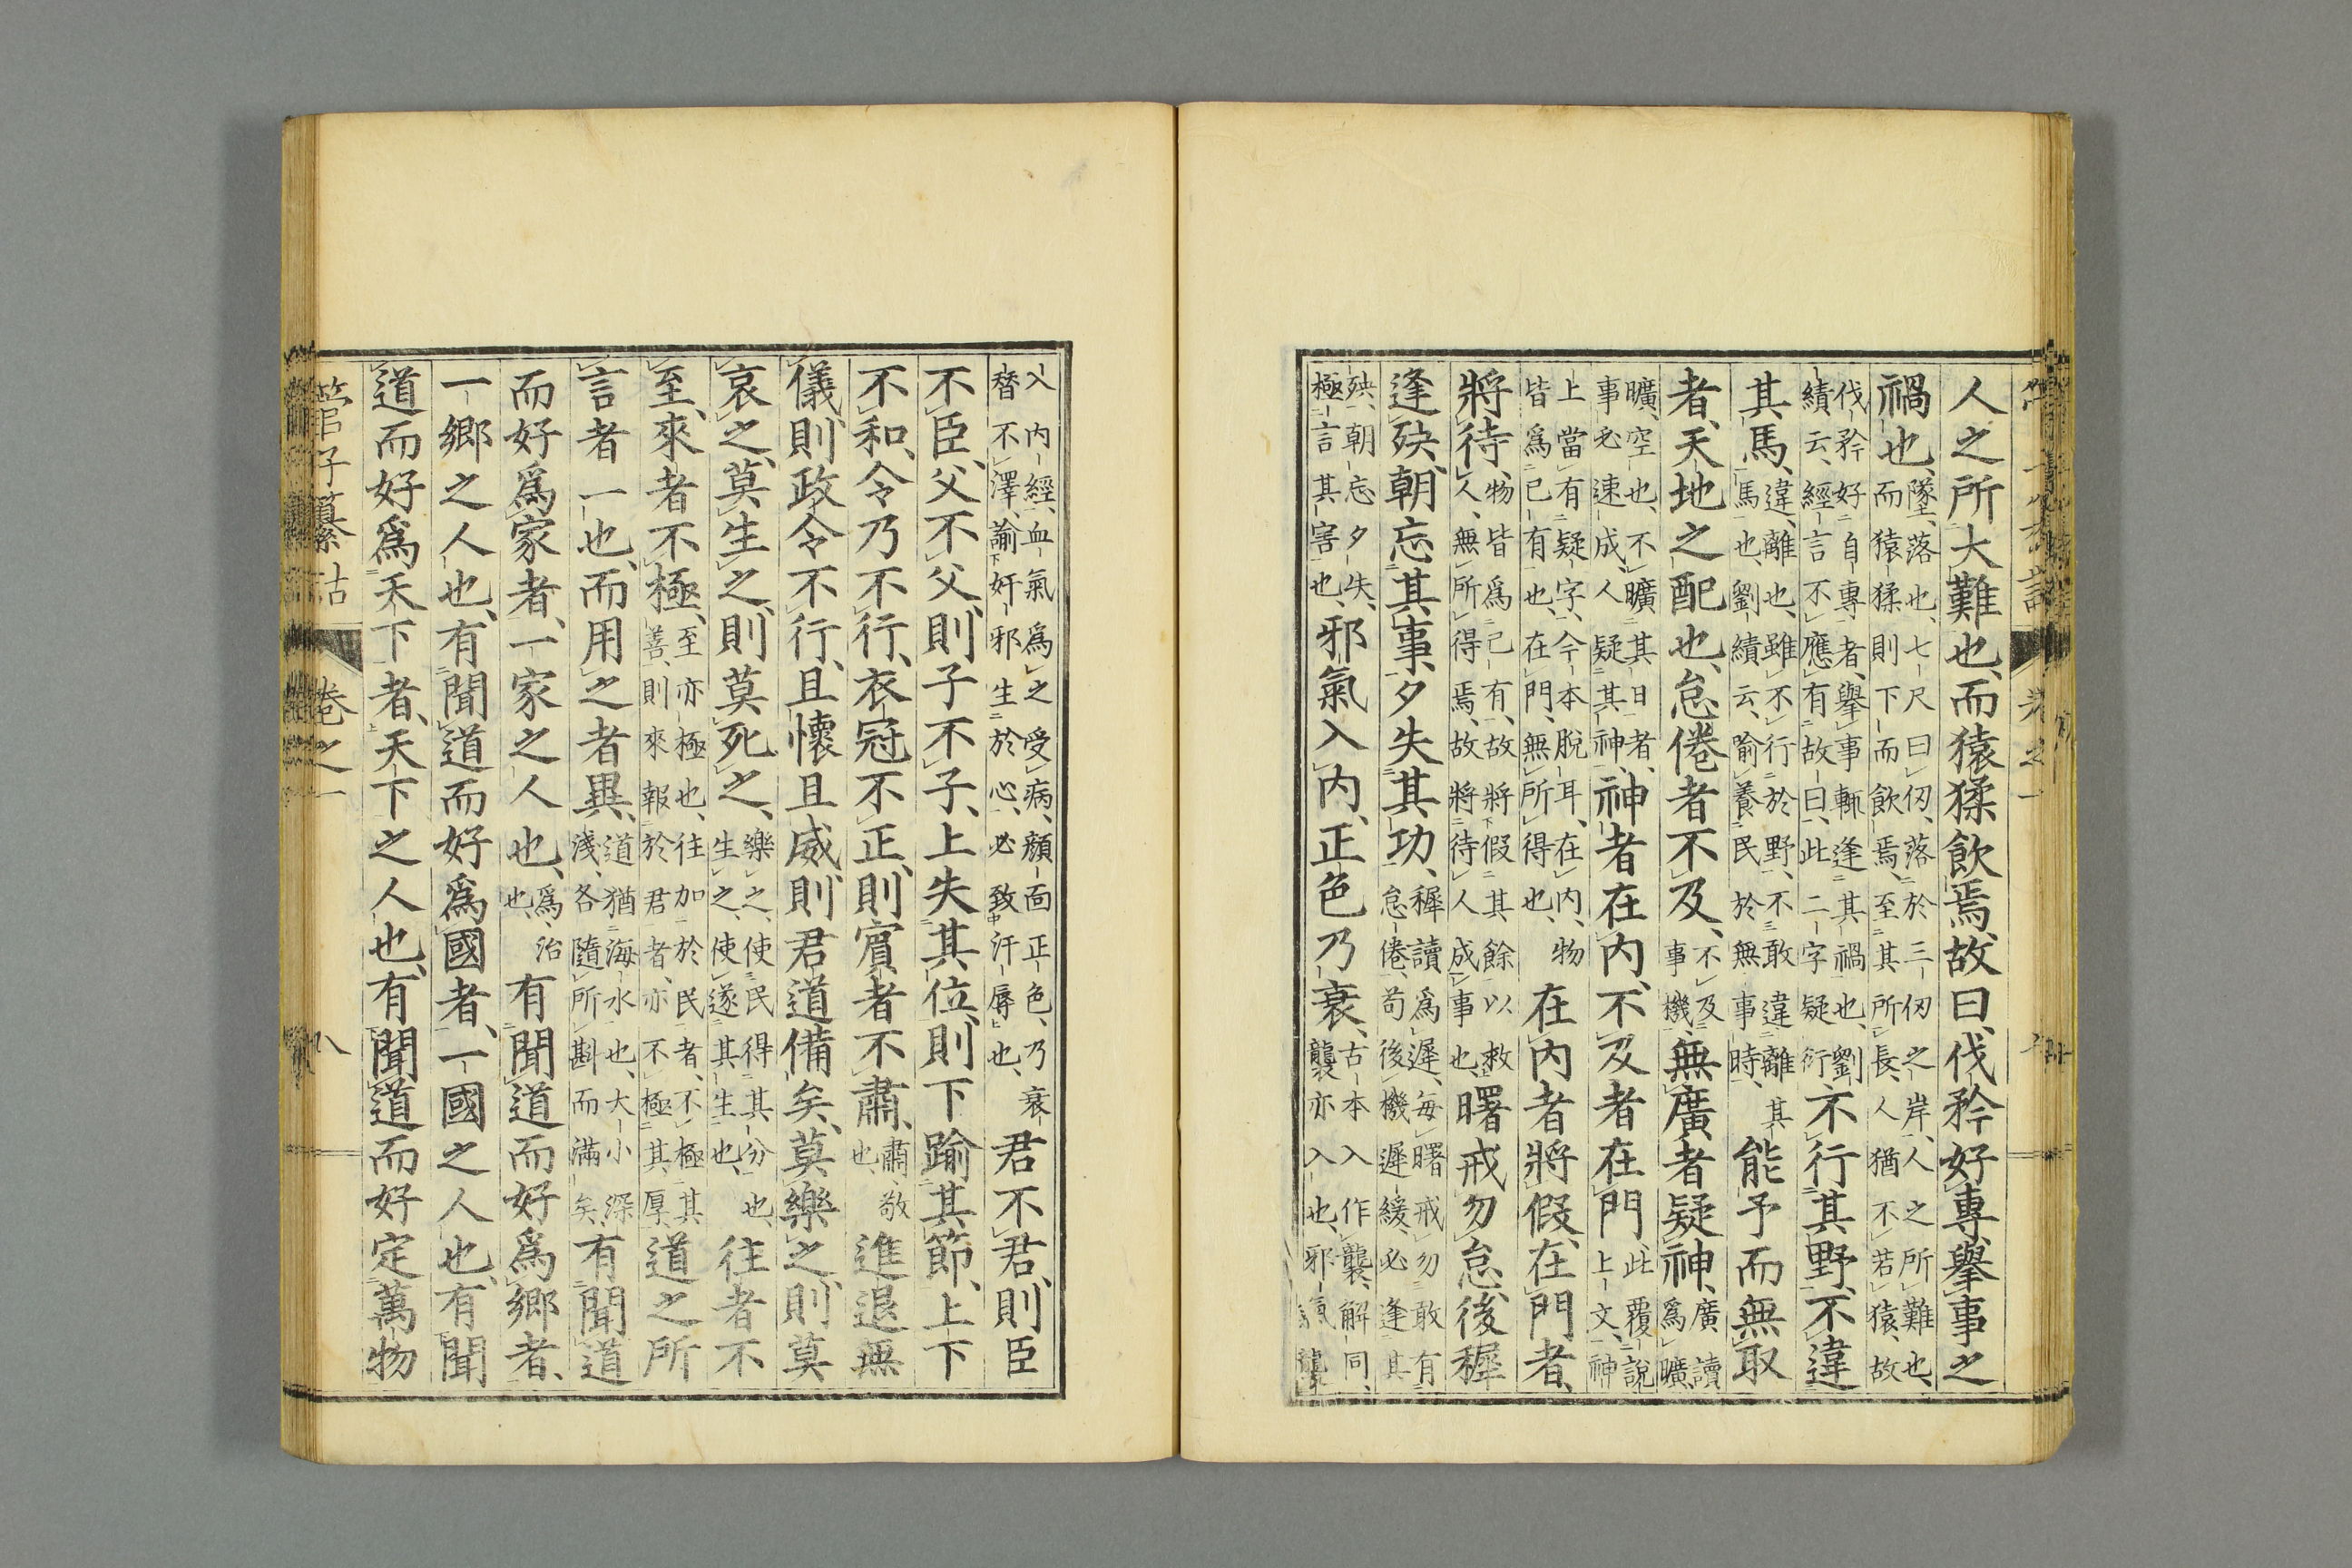 人之所大難也、而猿猱飲焉、故曰、伐矜好專、擧事之
禍也、墜、落也、七尺曰仭、落於三仭之岸、人之所難也、
而猿猱則下而飲焉、至其所長、人猶不若猿、故
伐矜好自專者、擧事輒逢其禍也、劉
績云、經言不應有故曰、此二字疑衍
不行其野、不違
其馬、違、離也、雖不行於野、不敢違離其
馬也、劉績云、喻養民於無事時、
能予而無取
者、天地之配也、怠倦者不及、不及
事機、
無廣者疑神、廣讀
爲曠、
曠、空也、不曠其日者、
事必速成、人疑其神、
神者在内、不及者在門、此覆說
上文、神
上當有疑字、今本脫耳、在内、物
皆爲已有也、在門、無所得也、
在内者將假、在門者、
將待、物皆爲已有、故將假其餘以敎
人、無所得焉、故將待人成事也、
曙戒勿怠、後穉
逢殃、朝忘其事、夕失其功、穉讀爲遲、每曙戒勿敢有
怠倦、苟後機遲緩、必逢其
殃、朝忘夕失、
極言其害也、
邪氣入内、正色乃衰、古本入作襲、解同、
襲亦入也、邪氣襲
入内、經、血氣爲之受病、顔面正色、乃衰
替不澤、諭奸邪生於心、必致汗辱也、
君不君、則臣
不臣、父不父、則子不子、上失其位、則下踰其節、上下
不和、令乃不行、衣冠不正、則賓者不肅、肅、敬
也、
進退無
儀、則政令不行、且懷且威、則君道備矣、莫樂之、則莫
哀之、莫生之、則莫死之、樂之、使民得其分也、
生之、使遂其生也、
往者不
至、來者不極、至亦極也、往加於民者、不極其
善、則來報於君者、亦不極其厚、
道之所
言者一也、而用之者異、道猶海水也、大小深
淺、各隨所斟而滿矣、
有聞道
而好爲家者、一家之人也、爲、治
也、
有聞道而好爲鄉者、
一鄉之人也、有聞道而好爲國者、一國之人也、有聞
道而好爲天下者、天下之人也、有聞道而好定萬物
管子纂詁 卷之一 八